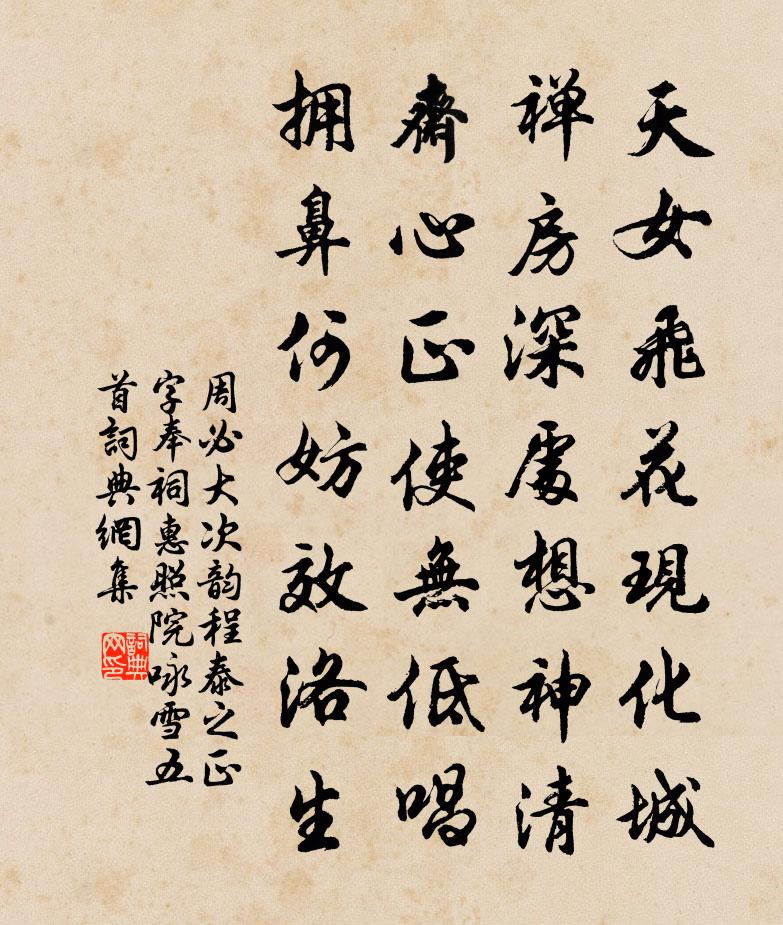 天女飛花現化城
禅房深處想神清
齋心正使無低唱
拥鼻何妨效洛生
周必大次韵程泰之正
字奉祠惠照院咏雪五
首詞典網集
詞典网印